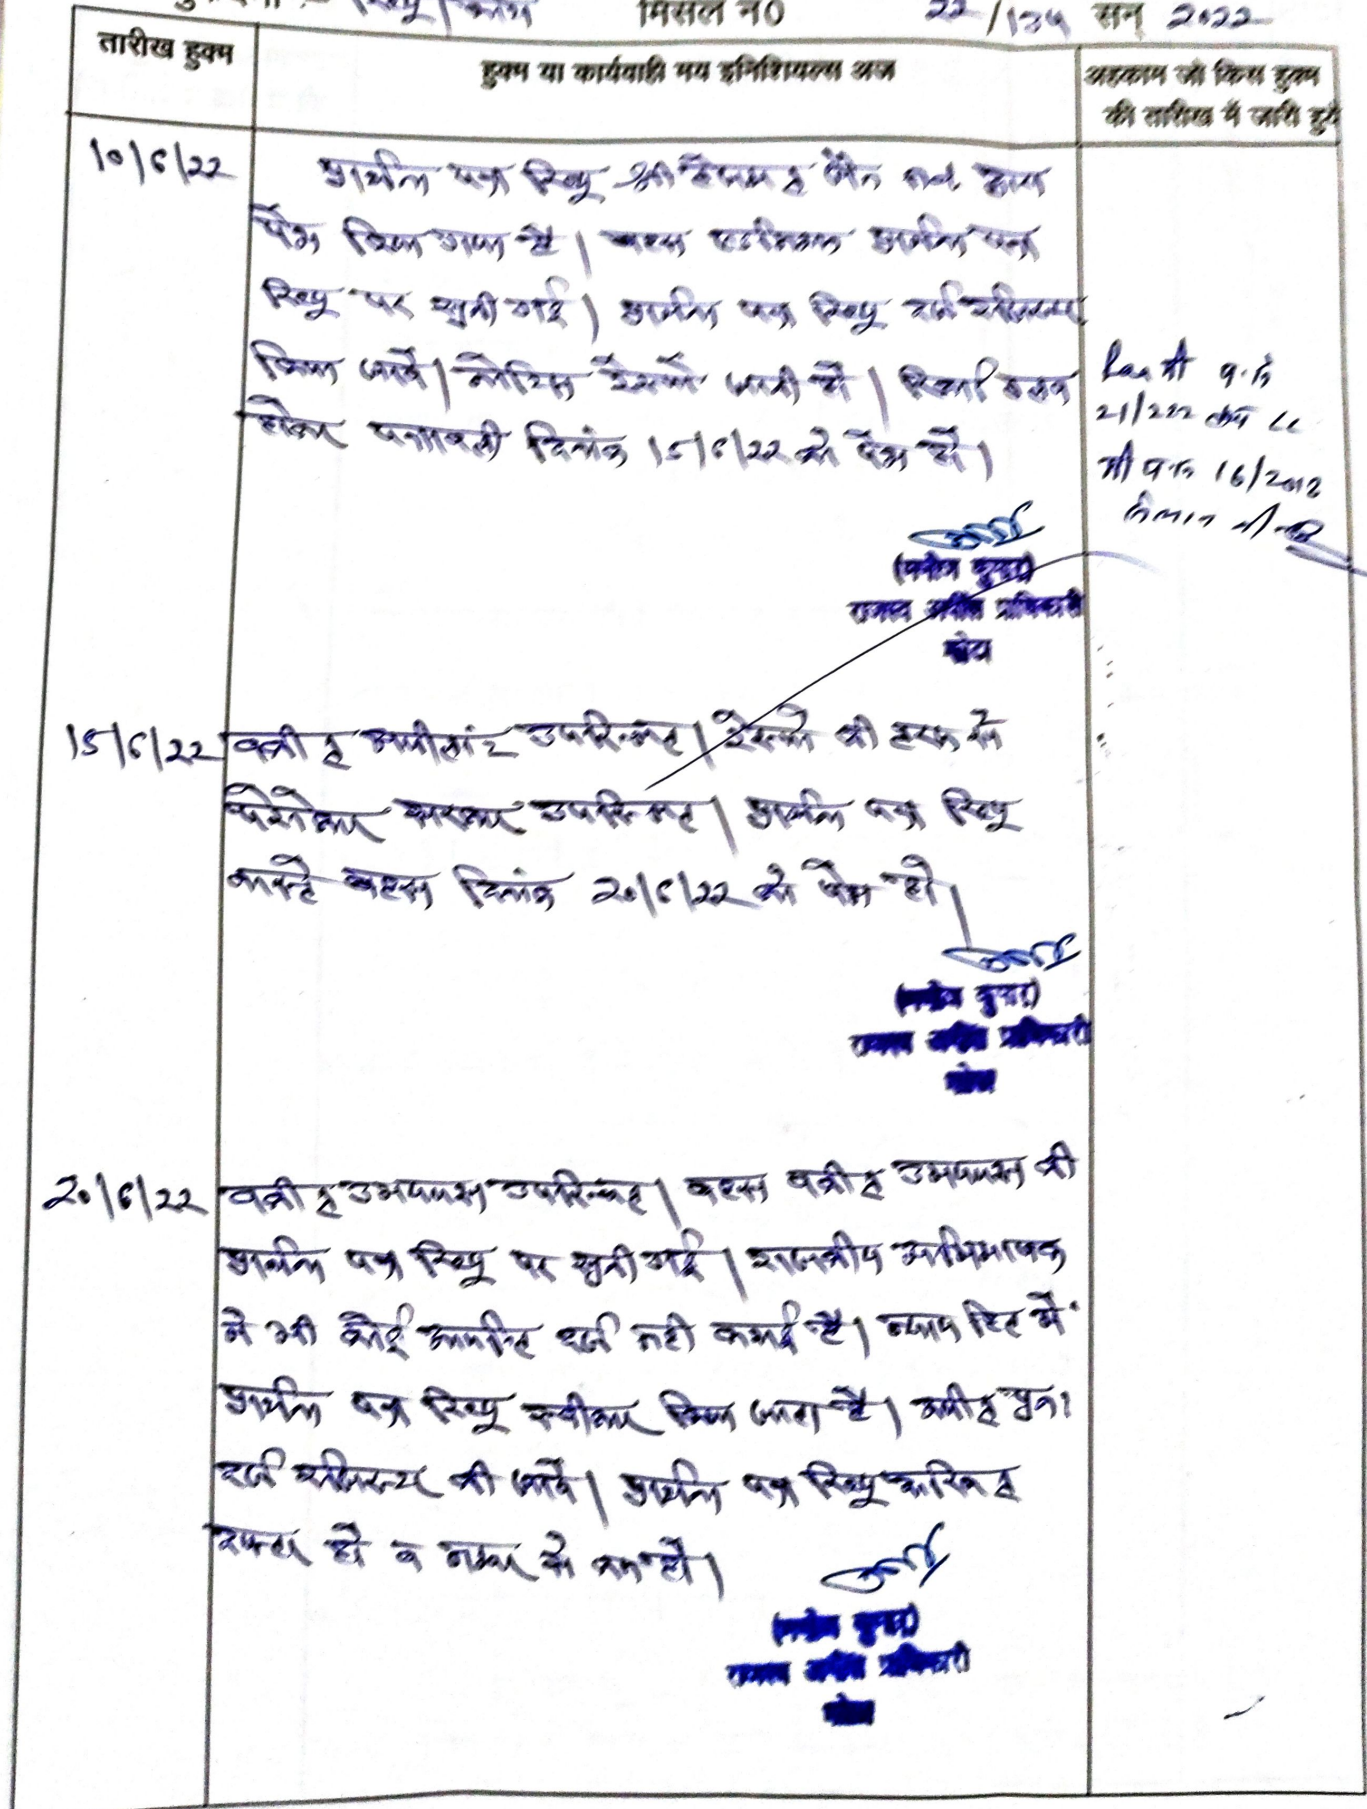 मिसल न0 22/134 सन् 2022
तारीख हुक्म
हुक्म या कार्यवाही मय इनिशियल्स अज
अहकाम जो किस हुक्म
की तारिख में जारी हुये
10/6/22
प्रार्थना पत्र रिव्यू श्री जैन द्वारा
पेश किया गया है। बहस एडमिशन प्रार्थना पत्र
रिव्यू पर सुनी गई। प्रार्थना पत्र रिव्यू दर्ज रजिस्टर
किया जावे। नोटिस रेस्पो जारी हो। रिकार्ड तलब
होकर पत्रावली दिनांक 15/6/22 को पेश हो।
21/222
16/2018
(मनोज कुमार)
राजस्व अपील प्राधिकारी
कोटा
15/6/22 वकील अपीलांट उपस्थित। रेस्पो की तरफ से
पेरोकार सरकार उपस्थित। प्रार्थना पत्र रिव्यू
वास्ते बहस दिनांक 20/6/22 को पेश हो।
(मनोज कुमार)
राजस्व अपील प्राधिकारी
कोटा
20/6/22 वकील उभयपक्ष उपस्थित। बहस वकील उभयपक्ष की
प्रार्थना पत्र रिव्यू पर सुनी गई। राजकीय अभिभाषक
ने भी कोई आपत्ति दर्ज नही कराई है। न्याय हित में
प्रार्थना पत्र रिव्यू स्वीकार किया जाता है। अपील पुनः
दर्ज रजिस्टर की जावे। प्रार्थना पत्र रिव्यू दाखिल
दफ्तर हो व नम्बर से कम हो।
(मनोज कुमार)
राजस्व अपील प्राधिकारी
कोटा